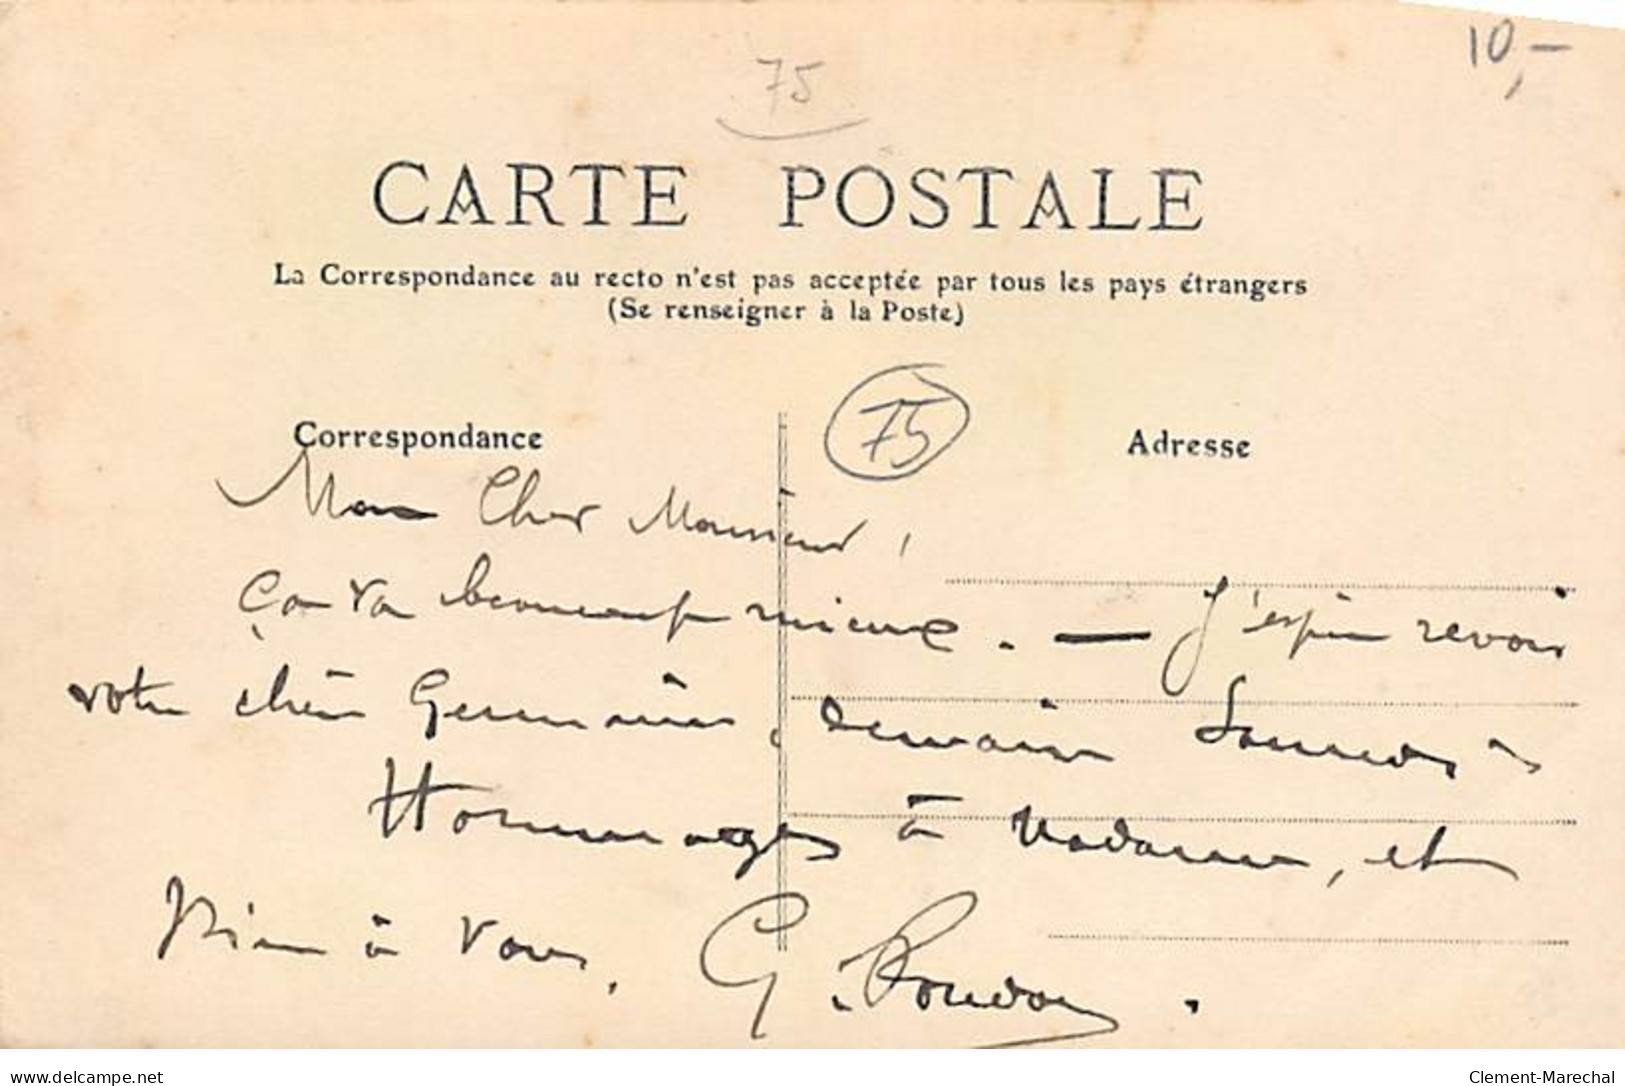 10,-
75
CARTE POSTALE
La Correspondance au recto n'est pas acceptée par tous les pays étrangers
(Se renseigner à la Poste)
75
Correspondance
Adresse
Mon Cher Monsieur,
ça va beaucoup mieux. — J'espère revoir
votre chère Germaine, demain Samedi
Hommages à Madame, et
Bien à vous,
www.delcampe.net
Clement-Marechal